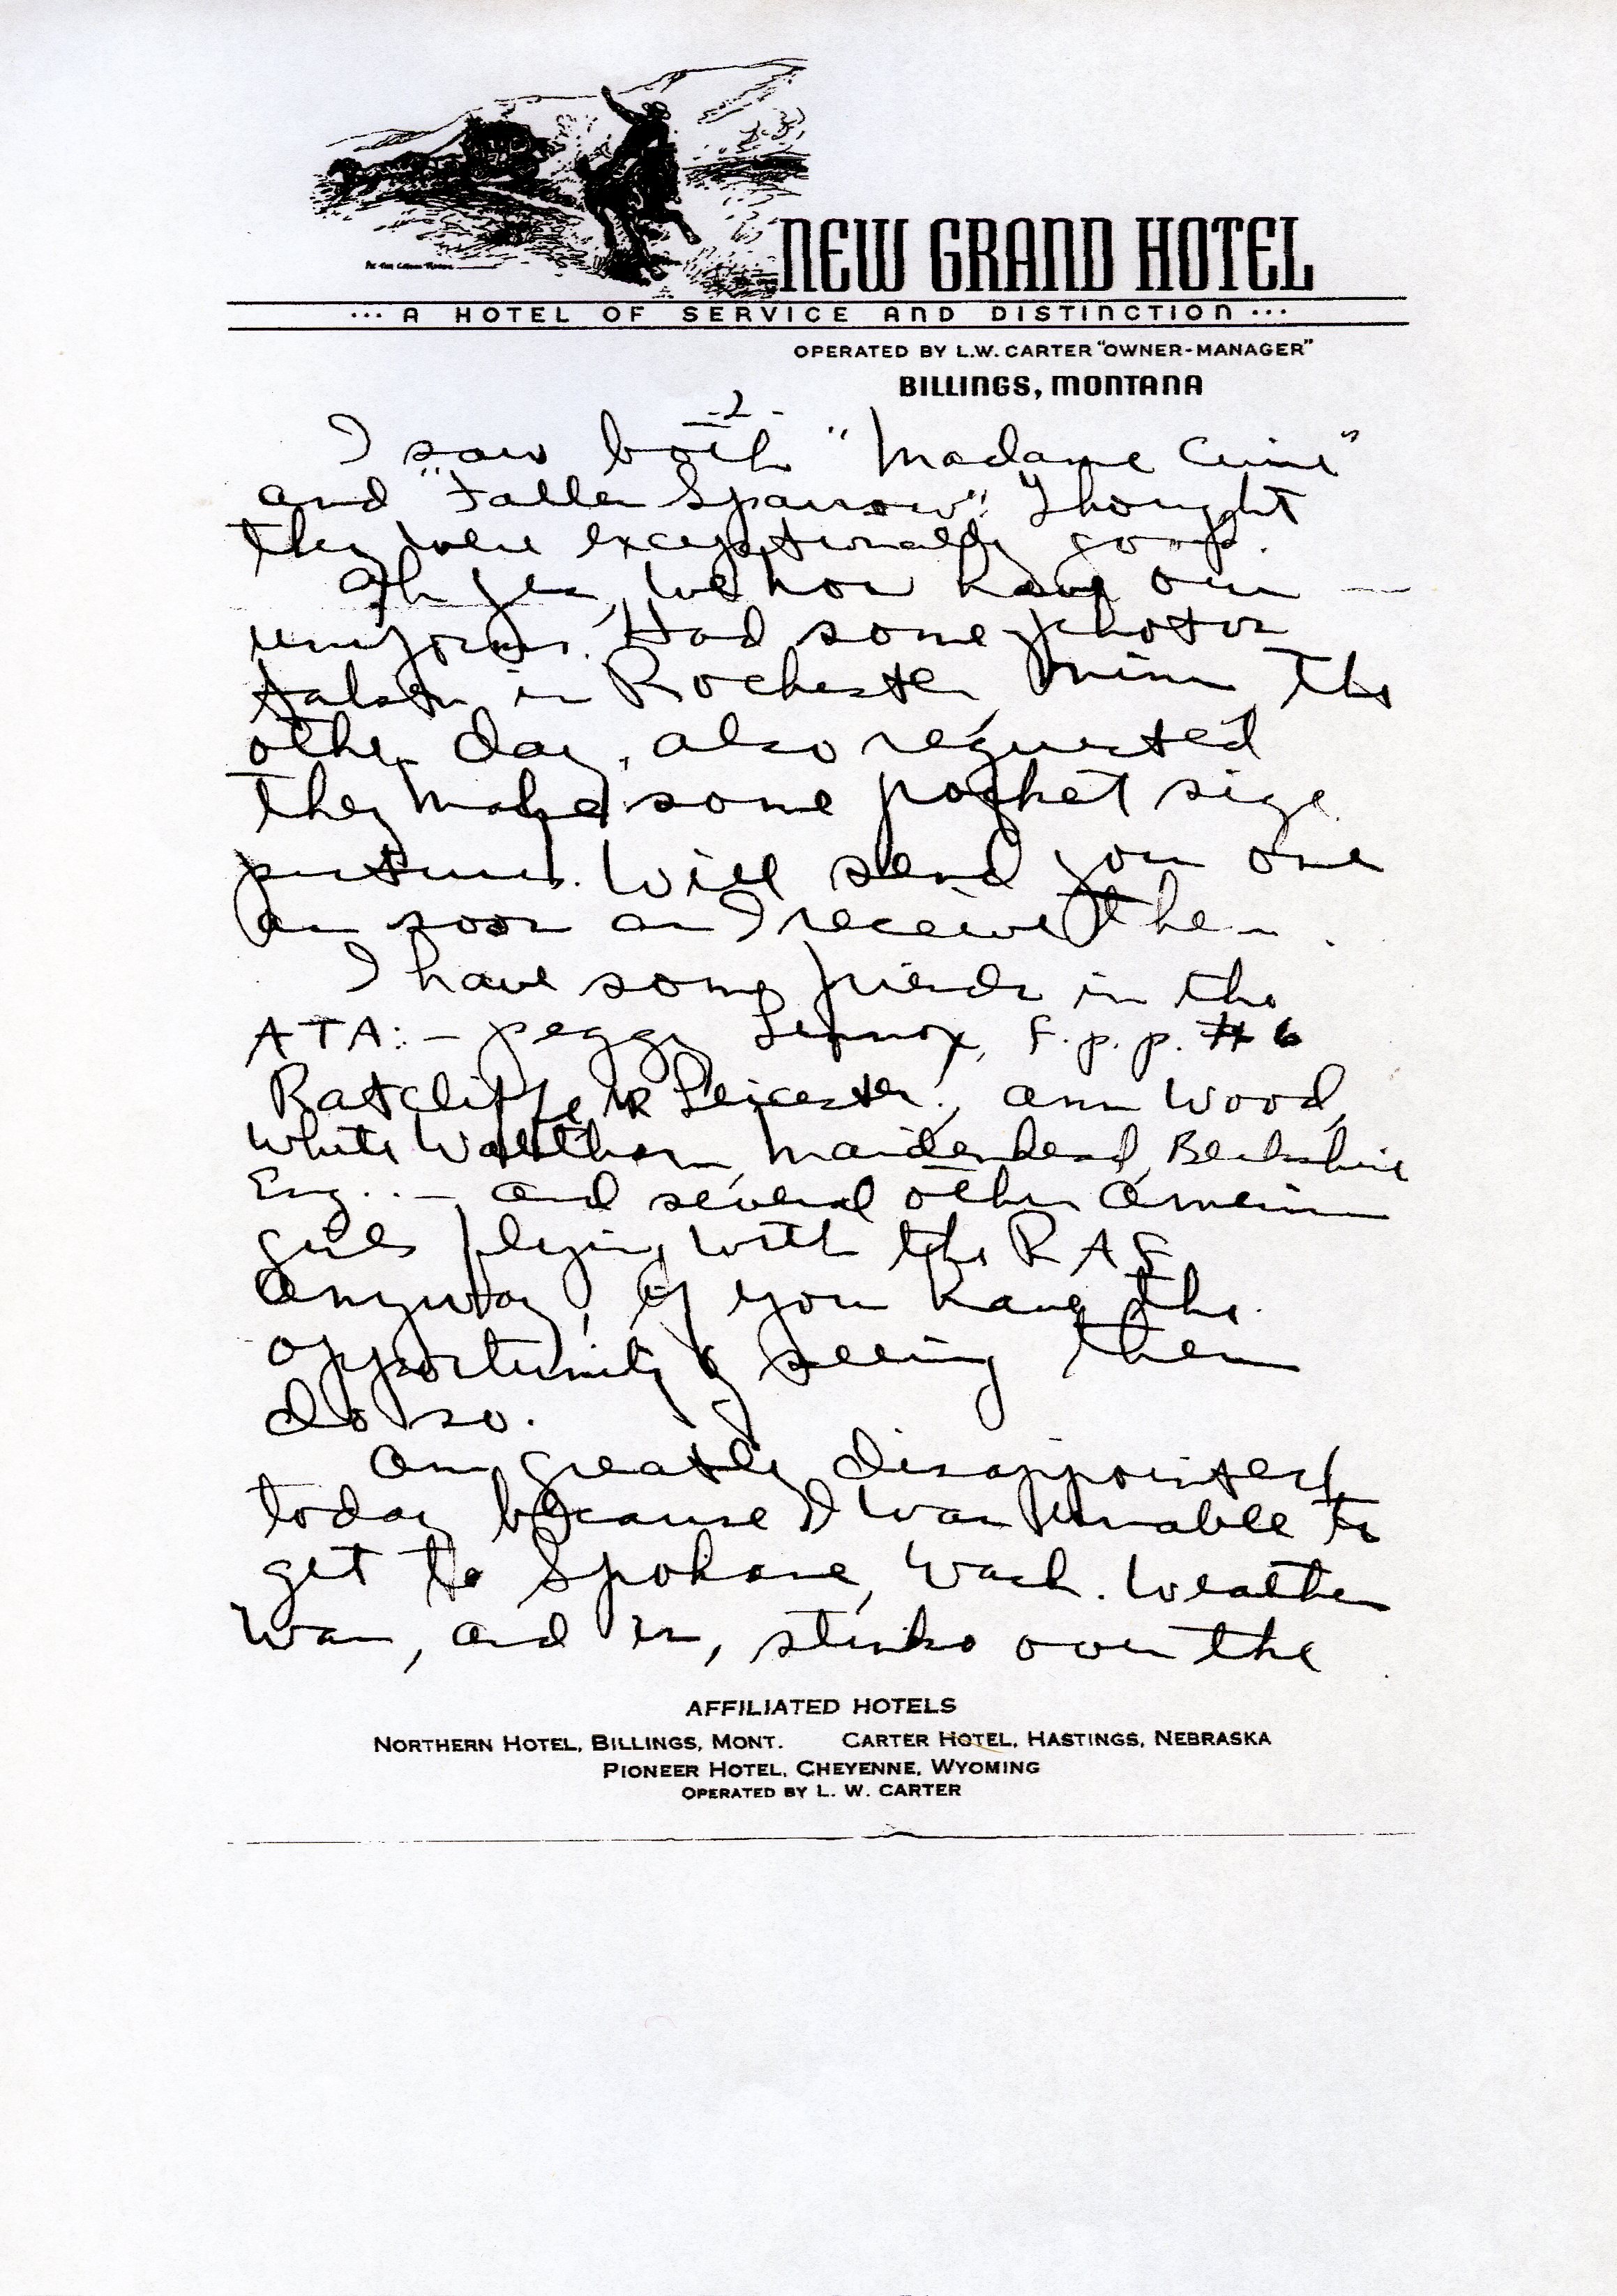 NEW GRAND HOTEL
... A HOTEL OF SERVICE AND DISTINCTION ...
OPERATED BY L.W. CARTER "OWNER-MANAGER"
BILLINGS, MONTANA
-2-
I saw both "Madame Curie"
and "Fallen Sparrow". Thought
they were exceptionally good.
Oh yes, we now have our
uniforms. Had some photos
taken in Rochester, Minn, the
other day, also requested
they make some pocket size
pictures. Will send you one
as soon as I receive them.
I have some friends in the
ATA:- Peggy Lennox, F.p.p. #6
Ratcliffe Leicester, Ann Wood,
White Waltham, Maidenhead, Berkshire
Eng.. - and several other American
girls flying with the RAF
Anyway, if you have the
opportunity of seeing them
do so.
Am greatly disappointed
today because I was unable to
get to Spokane, Wash. Weather
was, and is, stinko over the
AFFILIATED HOTELS
NORTHERN HOTEL, BILLINGS, MONT. CARTER HOTEL, HASTINGS, NEBRASKA
PIONEER HOTEL, CHEYENNE, WYOMING
OPERATED BY L. W. CARTER